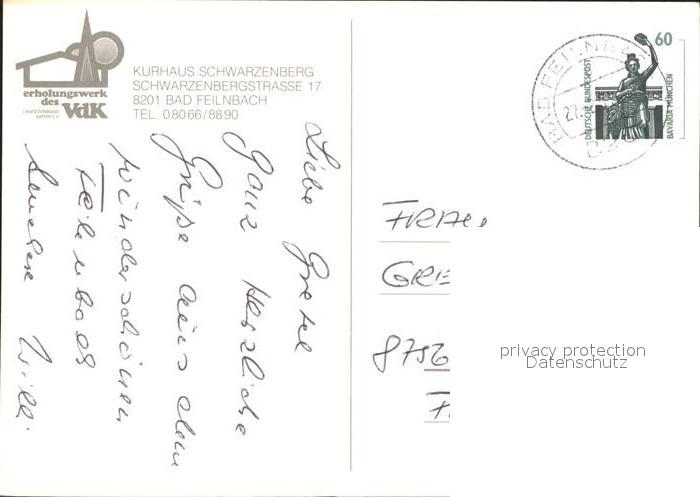 erholungswerk
des VdK
LANDESVERBAND
BAYERN E.V.
KURHAUS SCHWARZENBERG
SCHWARZENBERGSTRASSE 17
8201 BAD FEILNBACH
TEL. 08066/8890
Liebe Gretel
Ganz Herzliche
Grüße aus dem
wunderschönen
Feilnbach
Willi
BAD FEILNBA
60
DEUTSCHE BUNDESPOST
BAVARIA MÜNCHEN
FRAU
GRE
8756
privacy protection
Datenschutz